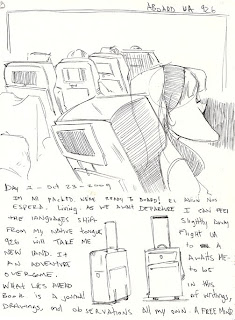 ABOARD UA 926
DAY 1 - Oct 23 - 2009
I'M ALL PACKED, WERE READY TO BOARD! EL AVION NOS
ESPERA. Living. AS WE AWAIT DEPARTURE I CAN FEEL
THE LANGUAGES SHIFT Slightly away
FROM MY NATIVE tongue. Flight UA
926 will TAKE ME TO A
NEW LAND. IT AWAITS ME.
AN ADVENTURE TO BE
OVERCOME.
WHAT LIES AHEAD IN THIS
BOOK IS A journal of writings,
DRAWINGS, and observations ALL MY own. A FREE MIND